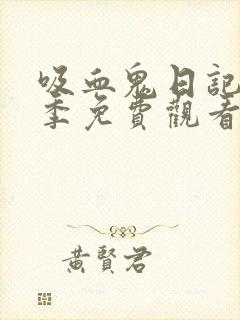 吸血鬼日記
季免費觀看
黃賢君